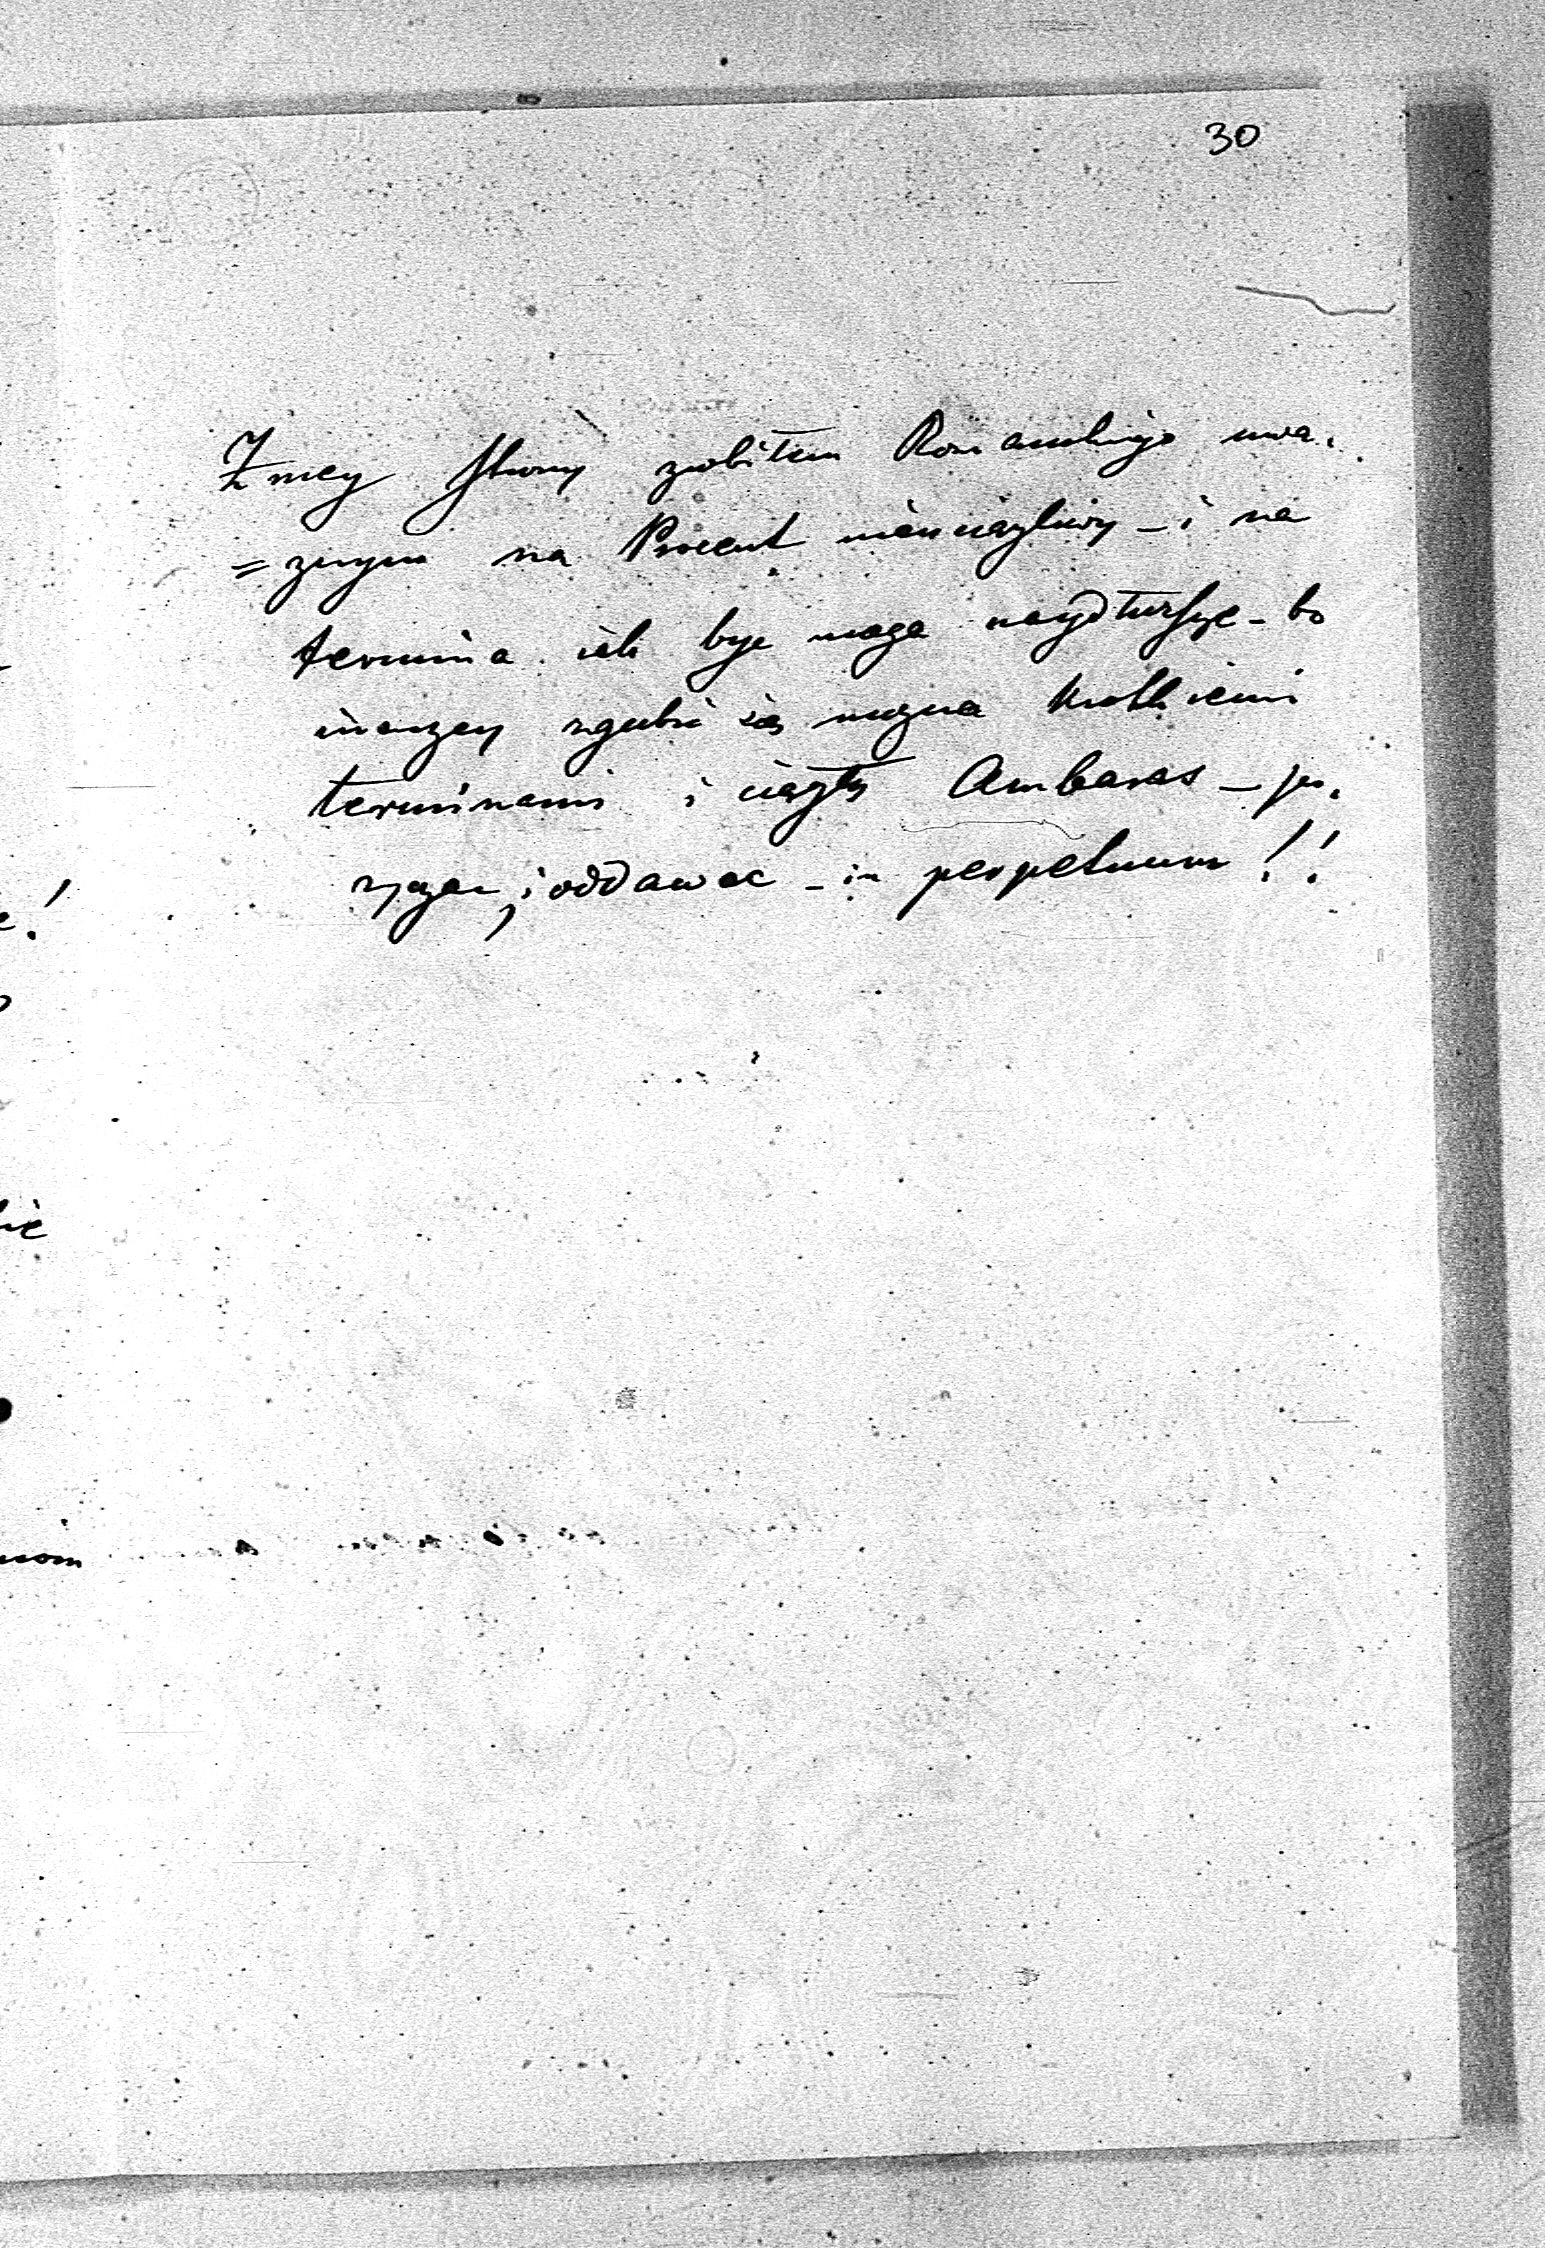 30
Z mey strony zrobiłem Romanskiego uwa.
=znym na Procent nieuciązliwy – i na
termina iak byc moga naydłuzsze – bo
inaczey zgubić się mozna krotkiemi
terminami i ciągły Ambaras – po.
zyczac, i oddawac – in perpetuum!!